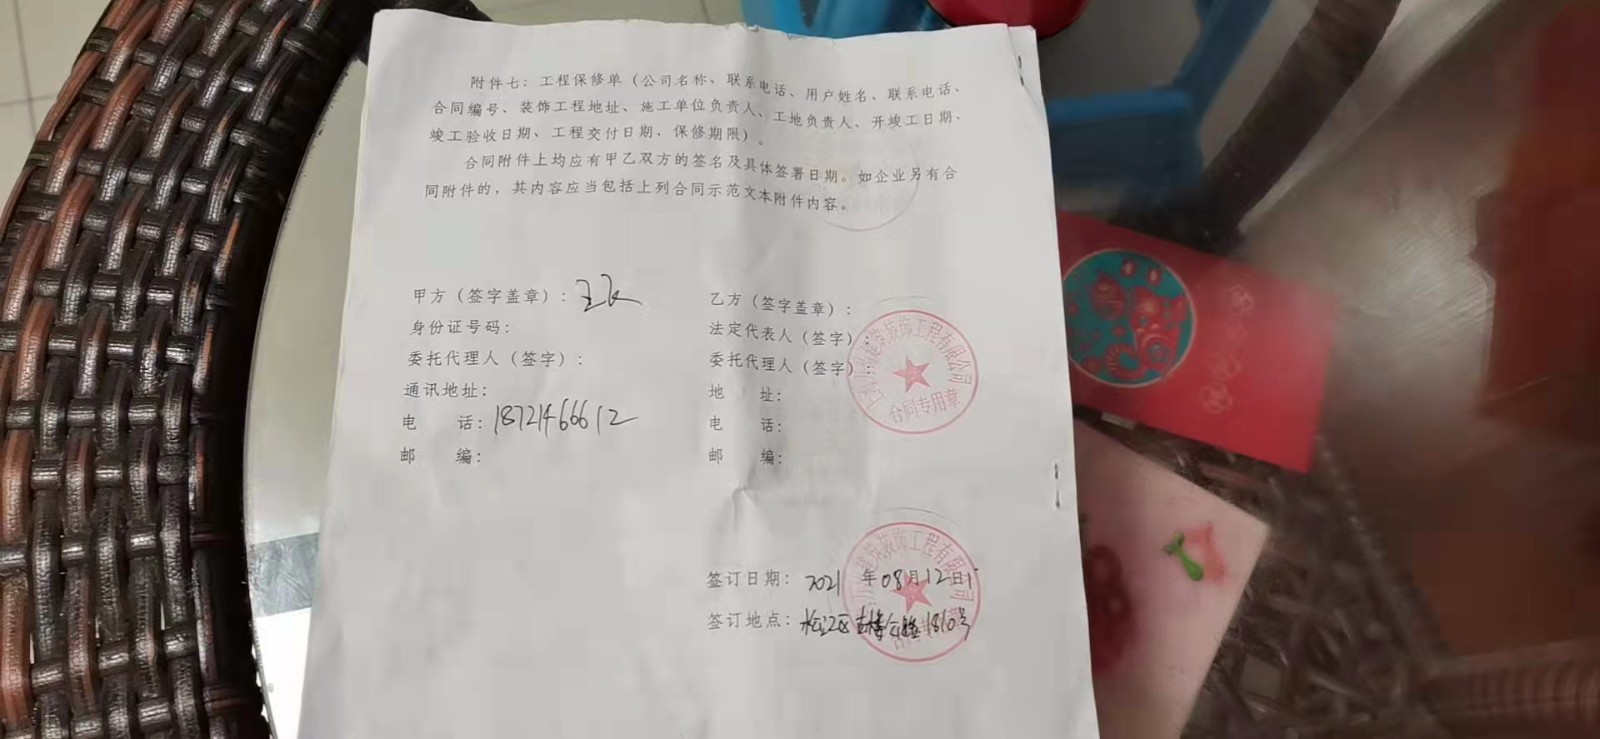 附件七：工程保修单（公司名称、联系电话、用户姓名、联系电话、
合同编号、装饰工程地址、施工单位负责人、工地负责人、开竣工日期、
竣工验收日期、工程交付日期、保修期限）。
合同附件上均应有甲乙双方的签名及具体签署日期。如企业另有合
同附件的，其内容应当包括上列合同示范文本附件内容。
甲方（签字盖章）：
乙方（签字盖章）：
身份证号码：
法定代表人（签字）：
委托代理人（签字）：
委托代理人（签字）
通讯地址：
地 址：
电 话：18721466612
电 话：
邮 编：
邮 编：
建筑装饰工程有限公司
合同专用章
签订日期：2021 年 08月12日
签订地点：松江区 路1810号
装饰工程有限公司